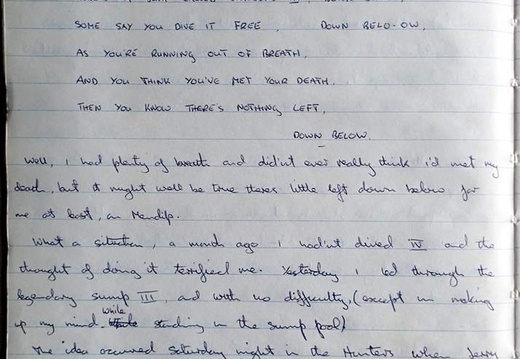 SOME SAY YOU DIVE IT FREE, DOWN BELO-OW,
AS YOU'RE RUNNING OUT OF BREATH,
AND YOU THINK YOU'VE MET YOUR DEATH,
THEN YOU KNOW THERE'S NOTHING LEFT,
DOWN BELOW.
Well, I had plenty of breath and didn't ever really think i'd met my
dead, but it might well be true theres little left down below for
me at least, on Mendip.
What a situation, a month ago I hadn't dived IV and the
thought of doing it terrified me. Yesterday I led through the
legendary sump III, and with no difficulty, (except in making
up my mind, while standing in the sump pool)
The idea occurred Saturday night in the Hunters when Jerry